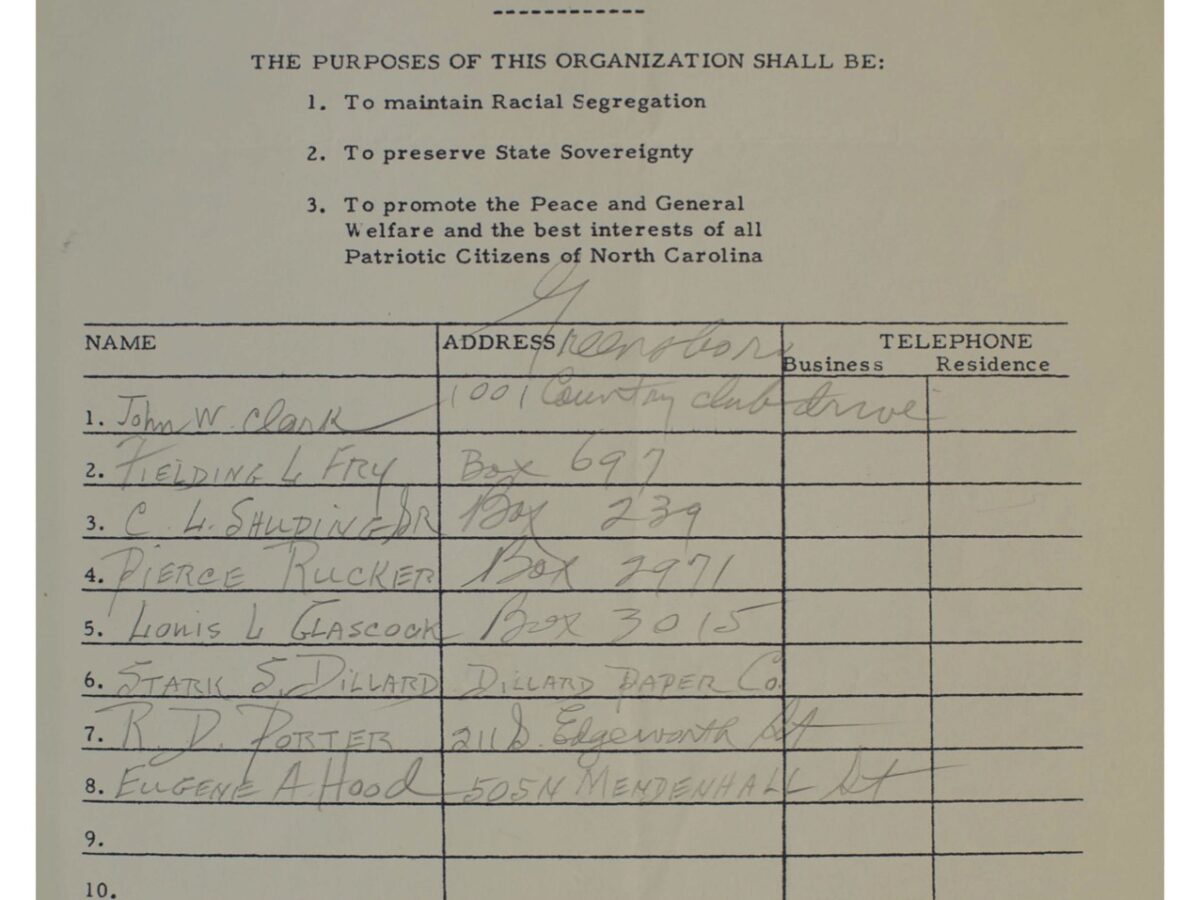 ------------
THE PURPOSES OF THIS ORGANIZATION SHALL BE:
1. To maintain Racial Segregation
2. To preserve State Sovereignty
3. To promote the Peace and General
Welfare and the best interests of all
Patriotic Citizens of North Carolina
Greensboro
NAME ADDRESS TELEPHONE
Business Residence
1. John W. Clark 1001 Country club drive
2. FIELDING L FRY Box 697
3. C. L. SHUPING SR Box 239
4. PIERCE RUCKER Box 2971
5. Louis L GLASCOCK Box 3015
6. STARK S. DILLARD DILLARD PAPER Co.
7. R. D. PORTER 211 S. Edgeworth St
8. EUGENE A. Hood 505 N MENDENHALL St
9.
10.